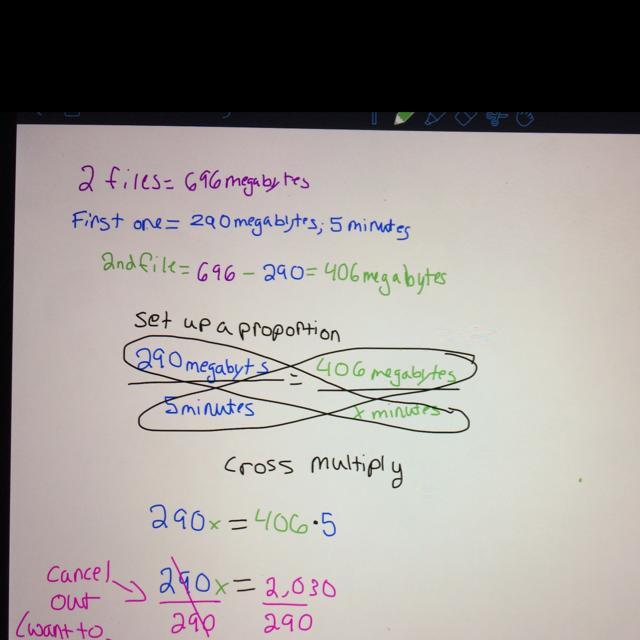 2 files = 696 megabytes
First one = 290 megabytes; 5 minutes
2nd file = 696 - 290 = 406 megabytes
set up a proportion
290 megabyts = 406 megabytes
5 minutes x minutes
cross multiply
290x = 406 • 5
cancel out (want to
290x = 2,030
290 290